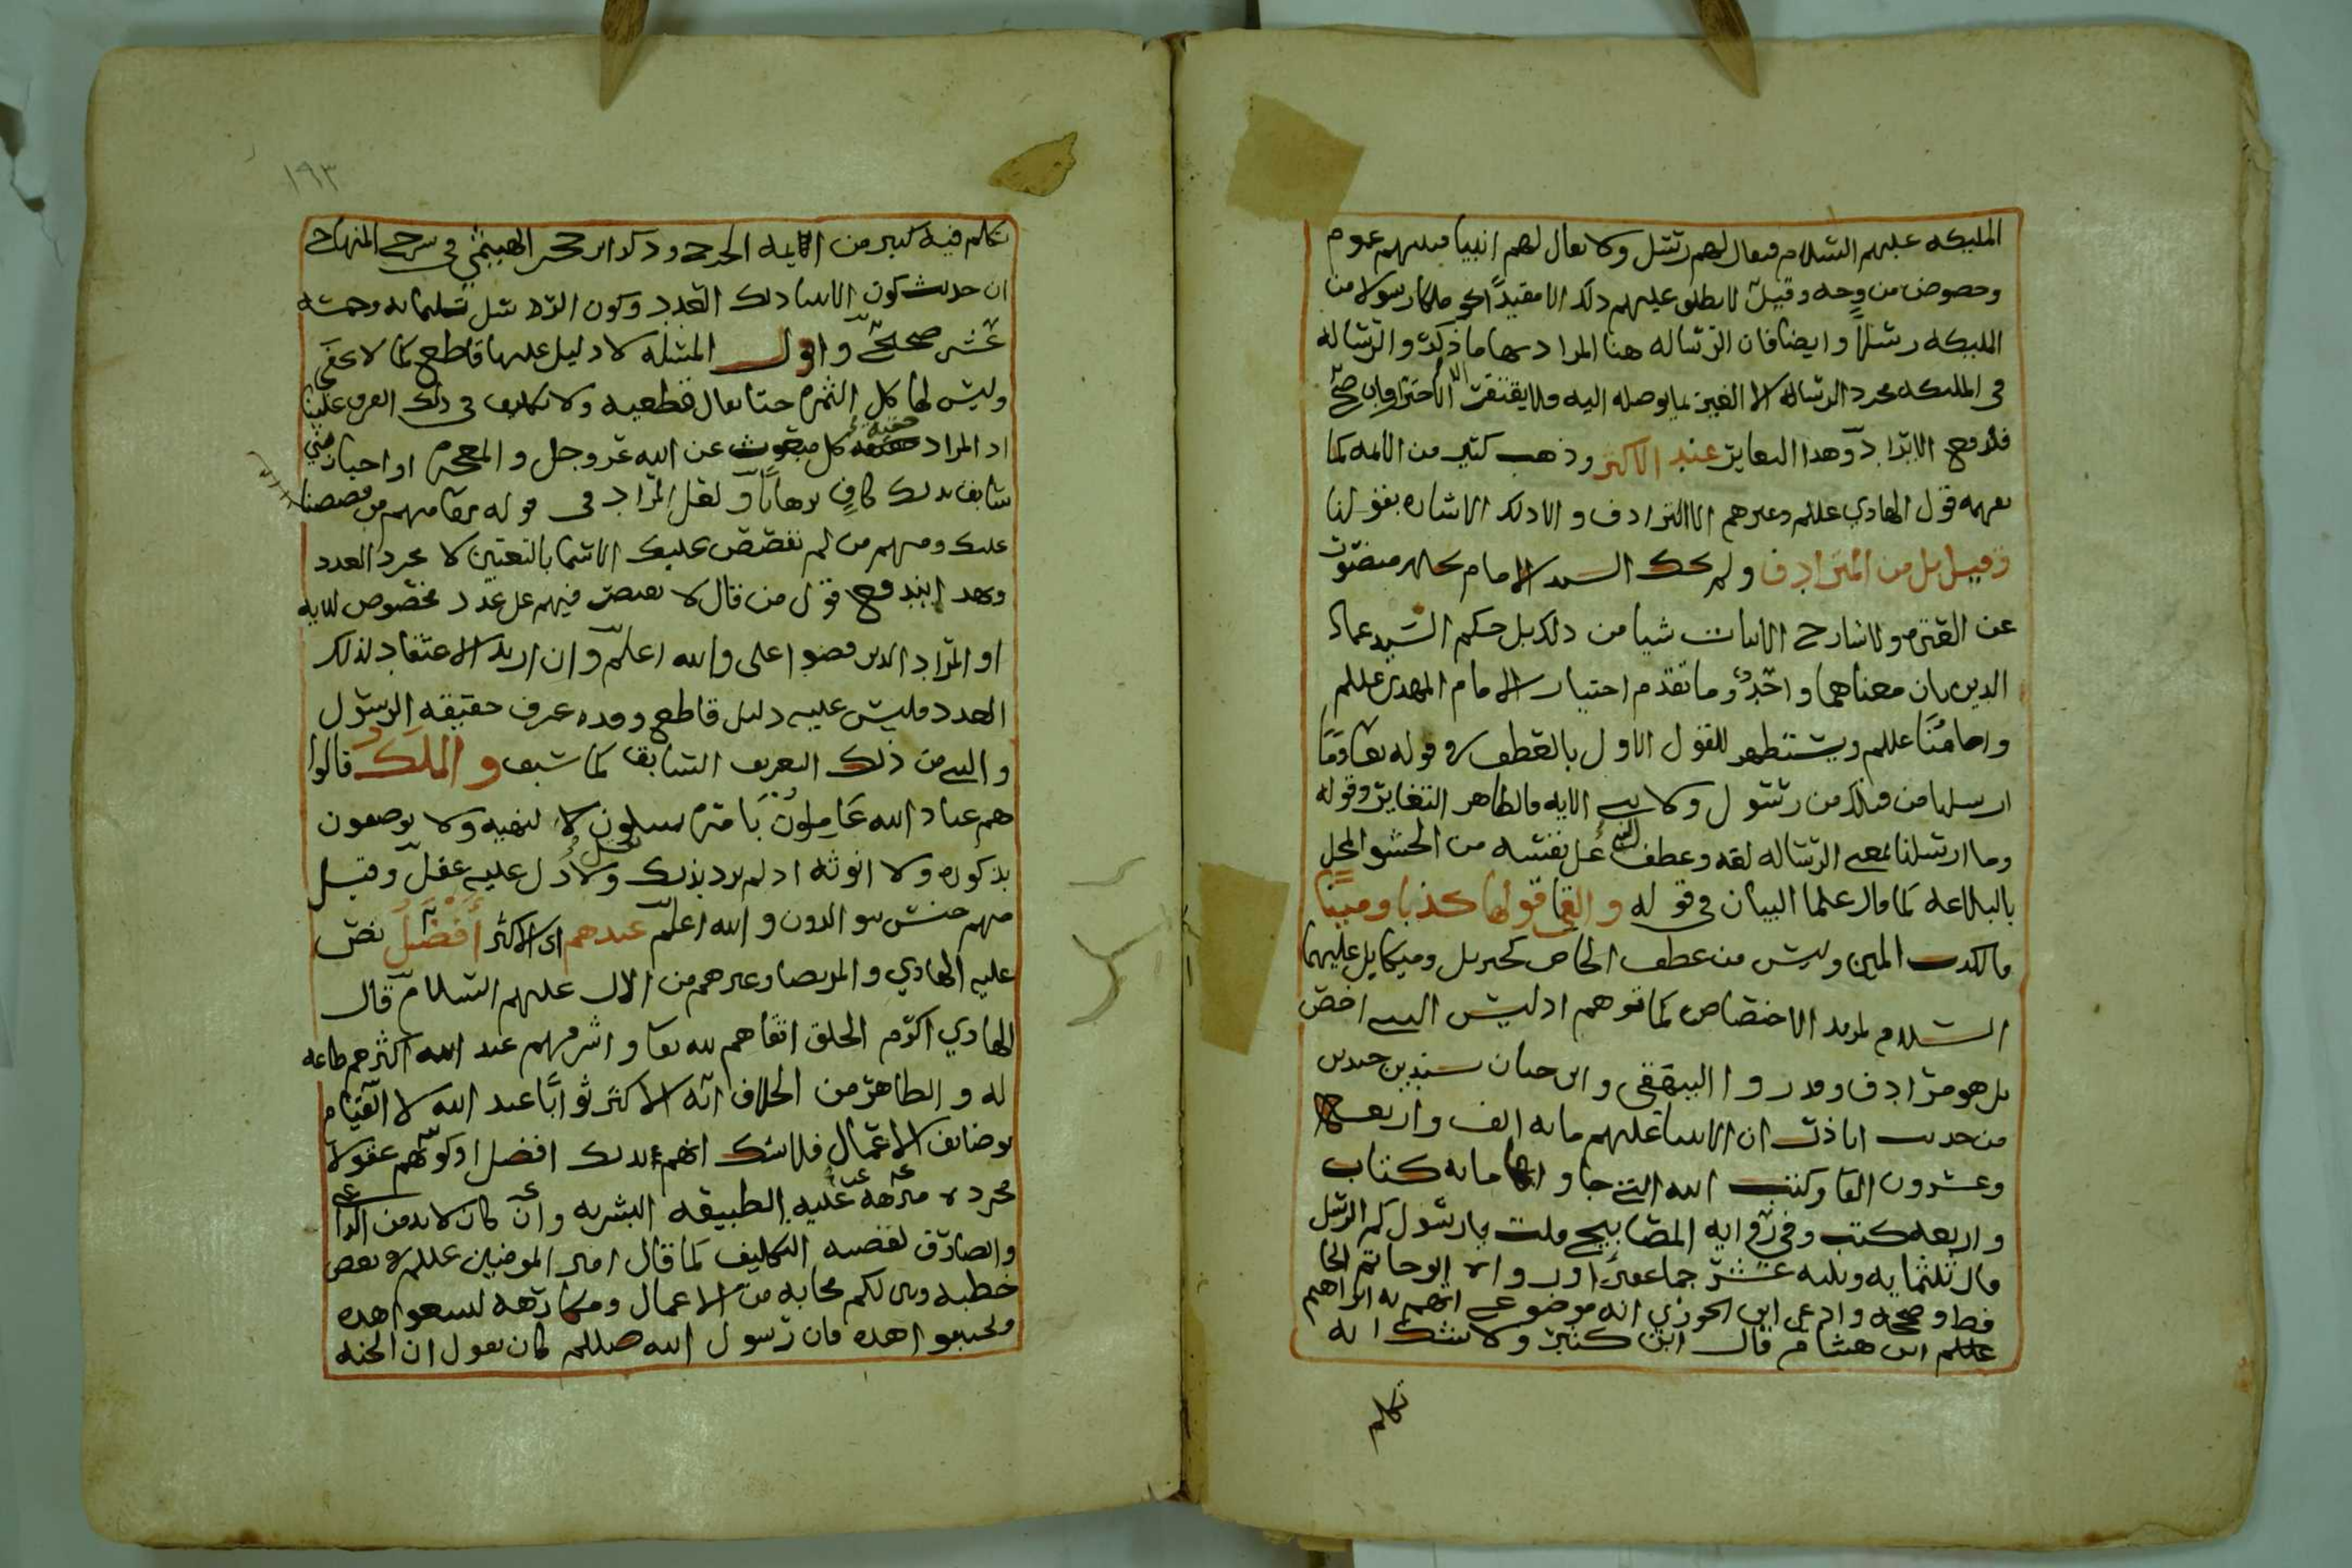 المليكه عليهم السلام فيقال لهم رسل ولا يقال لهم انبيا فبينهم عموم
وخصوص من وجه وقيل لا يطلق عليهم ذلك الا مقيدًا رسولا من
المليكه رسلا وايضا فان الرساله هنا المراد بها ما ذكر والرساله
في المليكه مجرد الرساله الا الغير بما يوصله اليه فلا يفتقر الا وان صح
فلا وجه الايراد وهذا التغاير عند الاكثر وذهب كثير من الايمه كما
يفهمه قول الهادي عللم وغيرهم الا الترادف والا ذلك الاشاره بقولنا
وقيل بل من المترادف ولم يحك السيد الامام
عن القسم ولا شارح الابيات شيا من ذلك بل حكم السيد عماد
الدين بان معناهما واحد وما تقدم اختيار الامام المهدي عللم
وامامنا عللم ويستظهر للقول الاول بالعطف في قوله تعا وما
ارسلنا من قبلك من رسول ولا نبي الايه فالظاهر التغاير وقوله
وما ارسلنا بمعنى الرساله لغه وعطف الشي على نفسه من الحشو المخل
بالبلاغه كما قال علما البيان في قوله والفى قولها كذبا ومينا
فالكذب المين وليس من عطف الخاص كجبريل وميكايل عليهما
السلام لمزيد الاختصاص كما توهم اذ ليس النبي اخص
بل هو مترادف وقد روا البيهقي وابن حبان بسندين جيدين
من حديث ابا ذر ان الانبيا عليهم مايه الف واربعه
وعشرون الفا وكتب الله التي جاوا بها مايه كتاب
واربعه كتب وفي روايه المصابيح قلت يا رسول كم الرسل
قال ثلثمايه وثلثه عشر جما غفيرا ورواه ابو حاتم الحا
فظ وصححه وادعى ابن الجوزي انه موضوع اتهم به ابراهيم
عللم ابن هشام قال ابن كثير ولا شك انه
تكلم
١٩٣
تكلم فيه كثير من الايمه الجرح وذكر ابن حجر الهيتمي في شرح المنهاج
ان حديث كون الانبيا ذلك العدد وكون الرسل ثلثمايه وخمسه
عشر صحيح واقول المسئله لا دليل عليها قاطع كما لا يخفى
وليس لها كل الثمره حتا يقال قطعيه ولا تكليف في ذلك الفرق علينا
اذ المراد كل مبعوث عن الله عز وجل والمعجزه او اخبار نبي
سابق بذلك كاف برهانًا ولعل المراد في قوله تعا منهم من قصصنا
عليك ومنهم من لم نقصص عليك الاسما بالتعيين لا مجرد العدد
وبهذا يندفع قول من قال لا يقتصر فيهم على عدد مخصوص للايه
او المراد الذين قصوا على والله اعلم وان اريد الاعتقاد لذلك
العدد فليس عليه دليل قاطع وقد عرف حقيقه الرسول
والنبي من ذلك التعريف السابق كما سبق والملك قالوا
هم عباد الله عاملون بامره لا لنهيه ولا يوصفون
بذكوره ولا انوثه اذ لم يرد بذلك نقل ولا دل عليه عقل وقيل
منهم جنس يتوالدون والله اعلم عندهم اى الاكثر أفضل نص
عليه الهادي والمرتضا وغيرهم من الال عليهم السلام قال
الهادي اكرم الخلق اتقاهم لله تعا واشرفهم عند الله اكثرهم طاعه
له والظاهر من الخلاف انه الاكثر ثوابًا عند الله لا القيام
بوضايف الاعمال فلا شك انهم بذلك افضل اذ كونهم عقولا
مجرده منزهه عن الطبيعه البشريه وان كان لا بد من الداعي
والصارف لقضيه التكليف كما قال امير المومنين عللم في بعض
خطبه وبين لكم محابه من الاعمال ومكارهه لتتبعوا هذه
وتجتنبوا هذه فان رسول الله صللم كان يقول ان الجنه